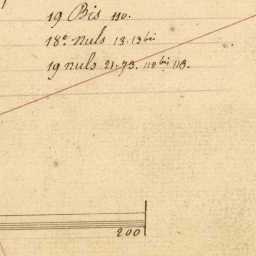 19 Bis 110.
18e. nuls 13. 13 bis
19 nuls 21. 73. 110 bis 113.
200